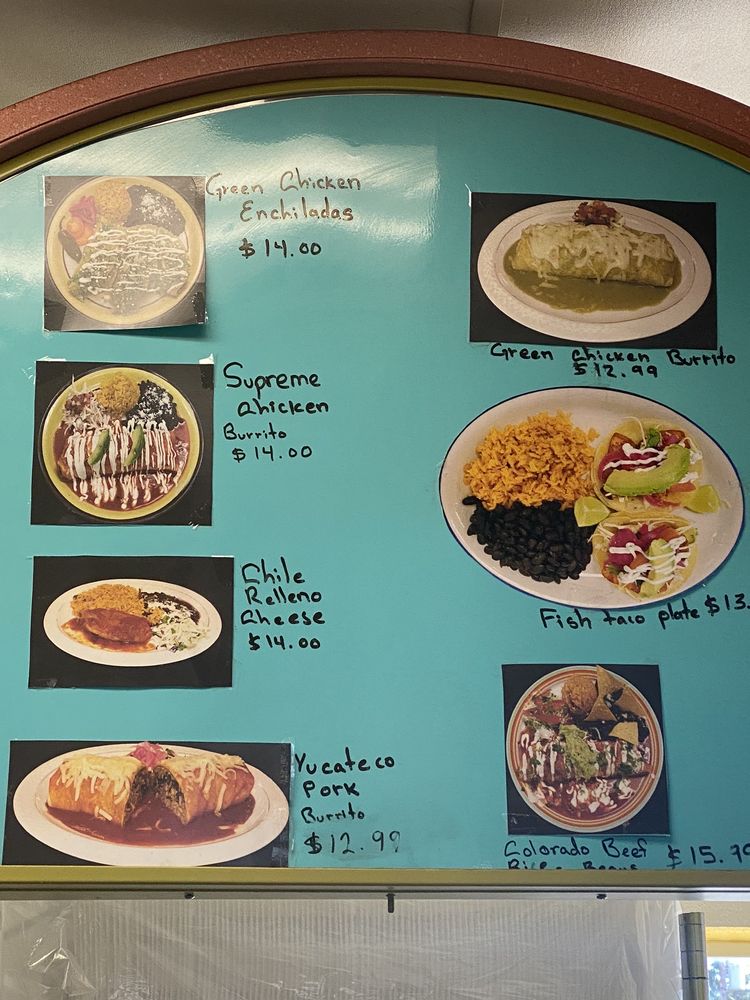 Green Chicken
Enchiladas
$14.00
Supreme
Chicken
Burrito
$14.00
Chile
Relleno
Cheese
$14.00
Yucateco
Pork
Burrito
$12.99
Green Chicken Burrito
$12.99
Fish taco plate $13.
Colorado Beef $15.79
Rice - Beans